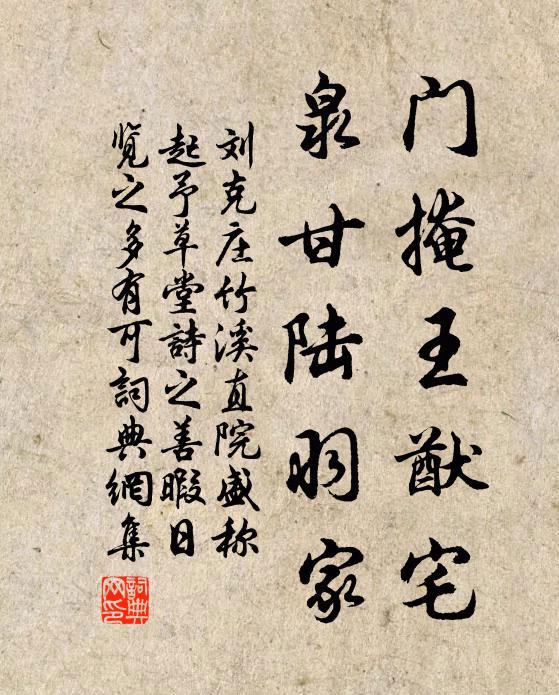 门掩王猷宅
泉甘陆羽家
刘克庄竹溪直院盛称
起予草堂詩之善暇日
覽之多有可詞典網集
詞典網印